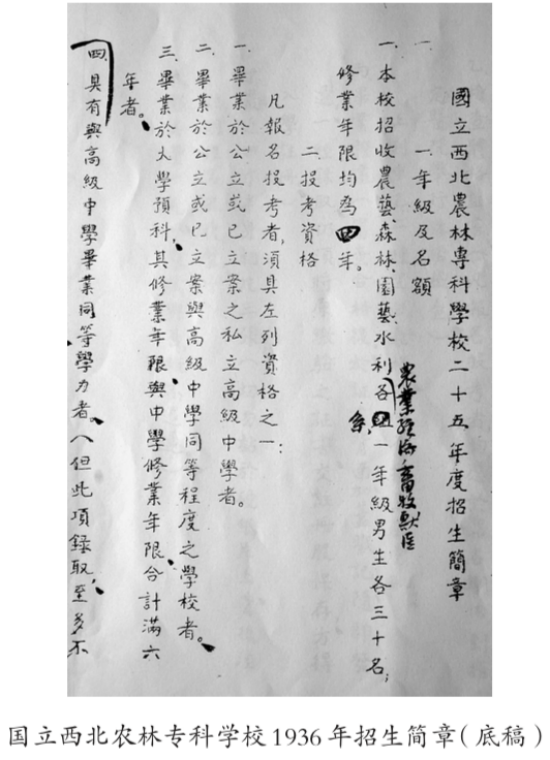 國立西北農林專科學校二十五年度招生簡章
一 一年級及名額
農業經済畜牧獸医
一、本校招收農藝、森林、園藝、水利各一年級男生各三十名;
系
修業年限均為四年。
二投考資格
凡報名投考者,須具左列資格之一:
一.畢業於公立或已立案之私立高級中學者。
二.畢業於公立或已立案與高級中學同等程度之學校者。
三.畢業於大學預科,其修業年限與中學修業年限合計滿六
年者。
四.具有與高級中學畢業同等學力者。(但此項錄取至多不
国立西北农林专科学校1936年招生简章(底稿)